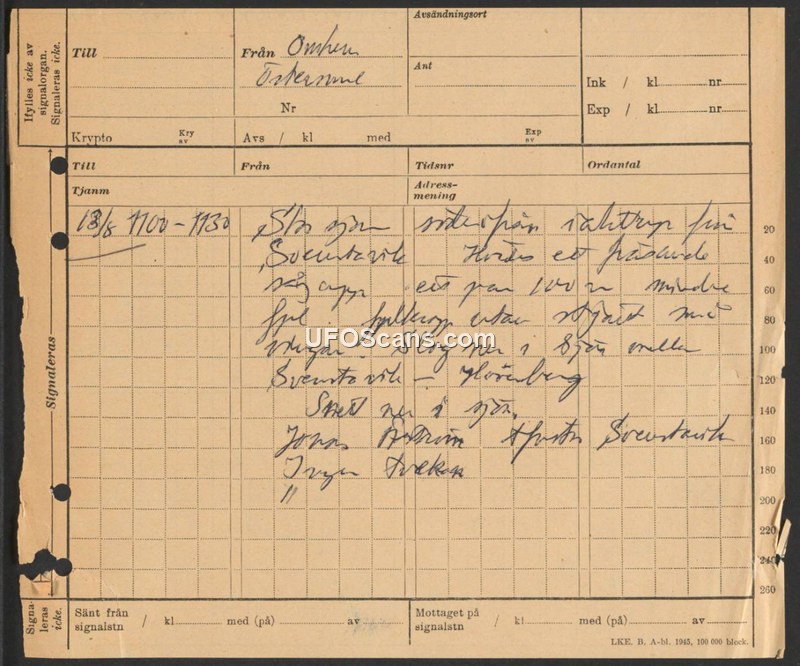 Ifylles icke av
signalorgan.
Signaleras icke.
Till
Från
Östersund
Nr
Avsändningsort
Ant
Ink / kl nr
Exp / kl nr
Krypto
Kry
av
Avs / kl med
Exp
av
Till Från Tidsnr Ordantal
Tjanm
Adress-
mening
Signaleras
13/8 1100-1130 sjön från
20
Svenstavik Hördes ett
40
upp ett par 100 m mindre
60
fpl. utan med
80
vingar. Slog ner i sjön mellan
100
Svenstavik - Hoverberg
120
ner i sjön.
140
Jonas Åström Svenstavik
160
Ingen tvekan
180
"
200
220
240
260
UFOScans.com
Signa-
leras
icke.
Sänt från
signalstn / kl med (på) av
Mottaget på
signalstn / kl med (på) av
LKF. B. A-bl. 1945, 100 000 block.